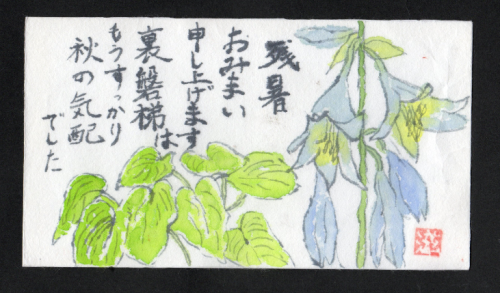 残暑
おみまい
申し上げます
裏磐梯は
もうすっかり
秋の気配
でした